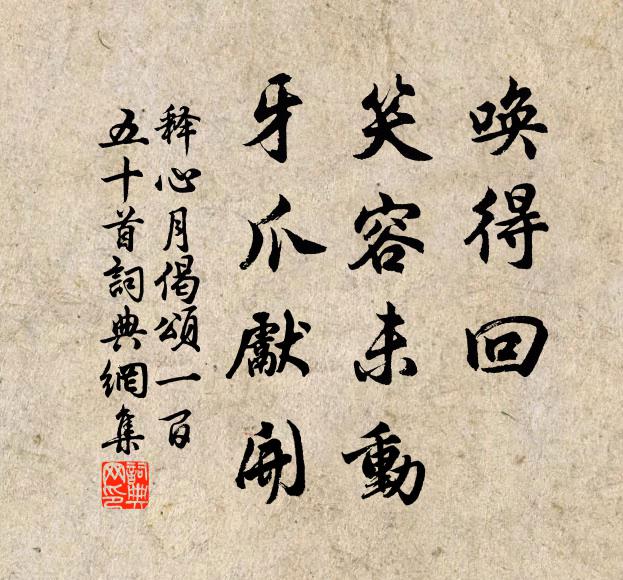 唤得回
笑容未動
牙爪獻開
释心月偈頌一百
五十首詞典網集
詞典
网印